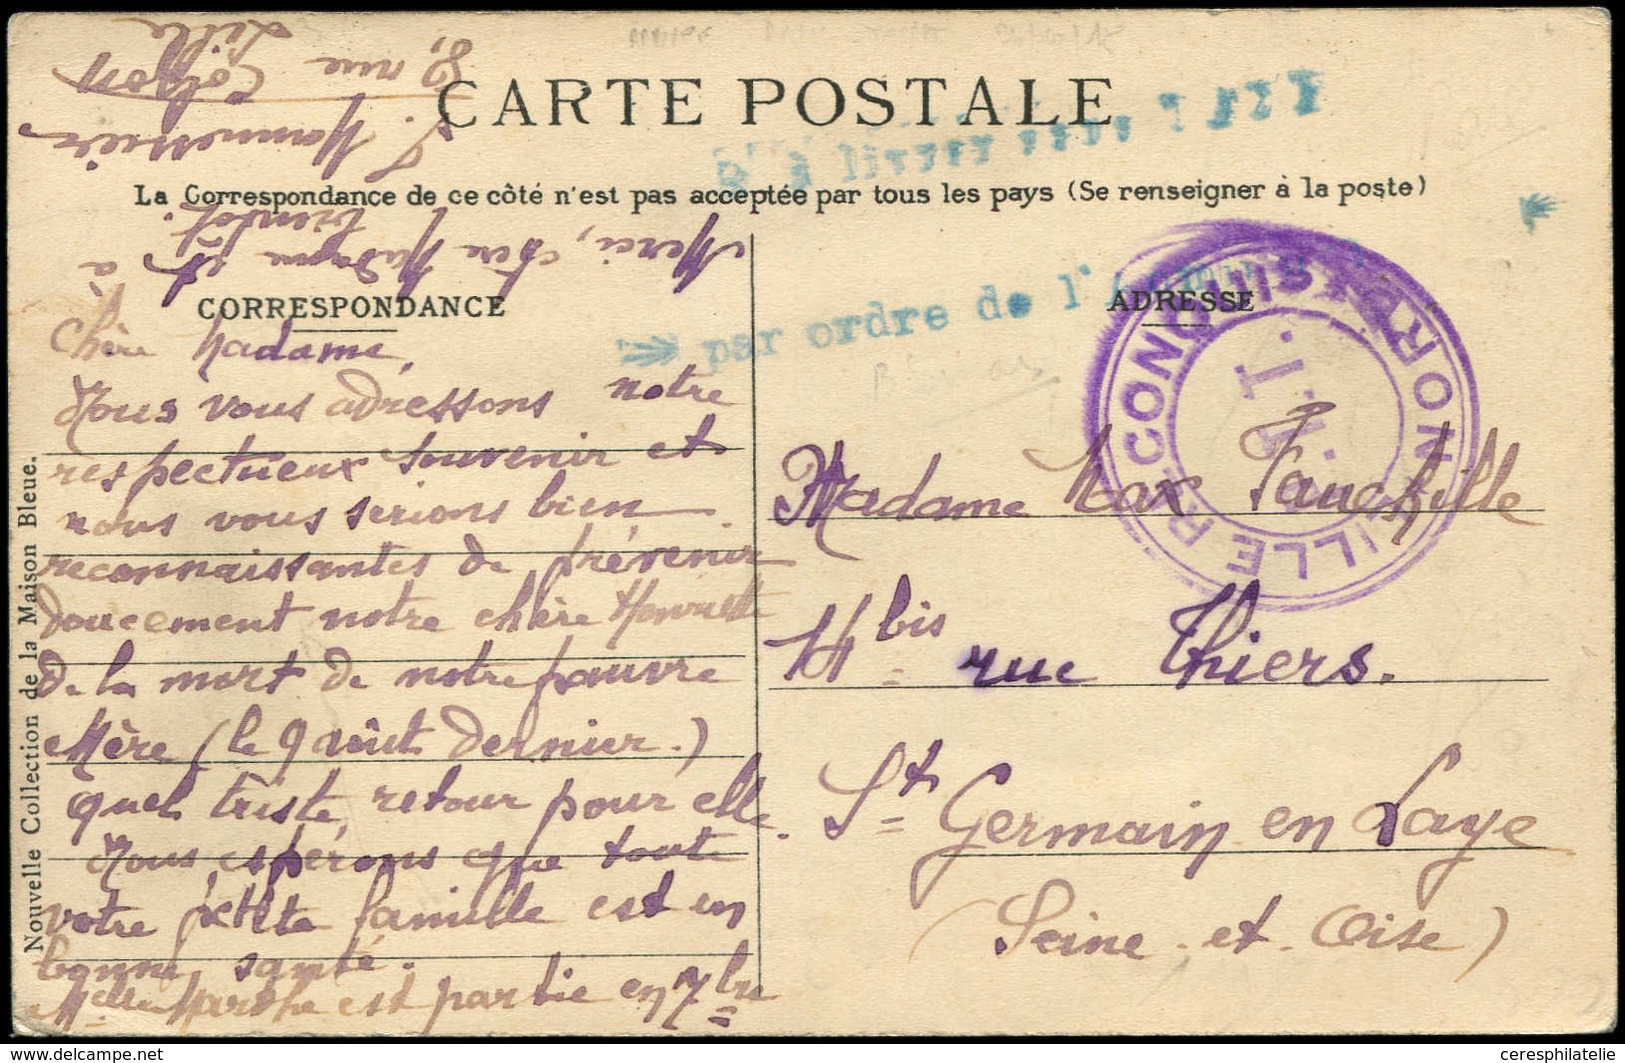 CARTE POSTALE
La Correspondance de ce côté n'est pas acceptée par tous les pays (Se renseigner à la poste)
CORRESPONDANCE
ADRESSE
Chère Madame,
Nous vous adressons notre
respectueux souvenir et
nous vous serions bien
reconnaissantes de prévenir
doucement notre chère Henriette
de la mort de notre pauvre
Mère (le 9 août dernier.)
quel triste retour pour elle.
Nous espérons que toute
votre petite famille est en
bonne santé.
Melle Marthe est partie en 7bre
Merci, chère Madame et à
bientôt.
8, rue Colson
Lille
par ordre de l'
à livrer
LILLE RECONQUISE
NORD
T.
Madame Max Fauchille
14 bis rue Thiers.
St Germain en Laye
(Seine et Oise)
Nouvelle Collection de la Maison Bleue.
ceresphilatelie
© www.delcampe.net